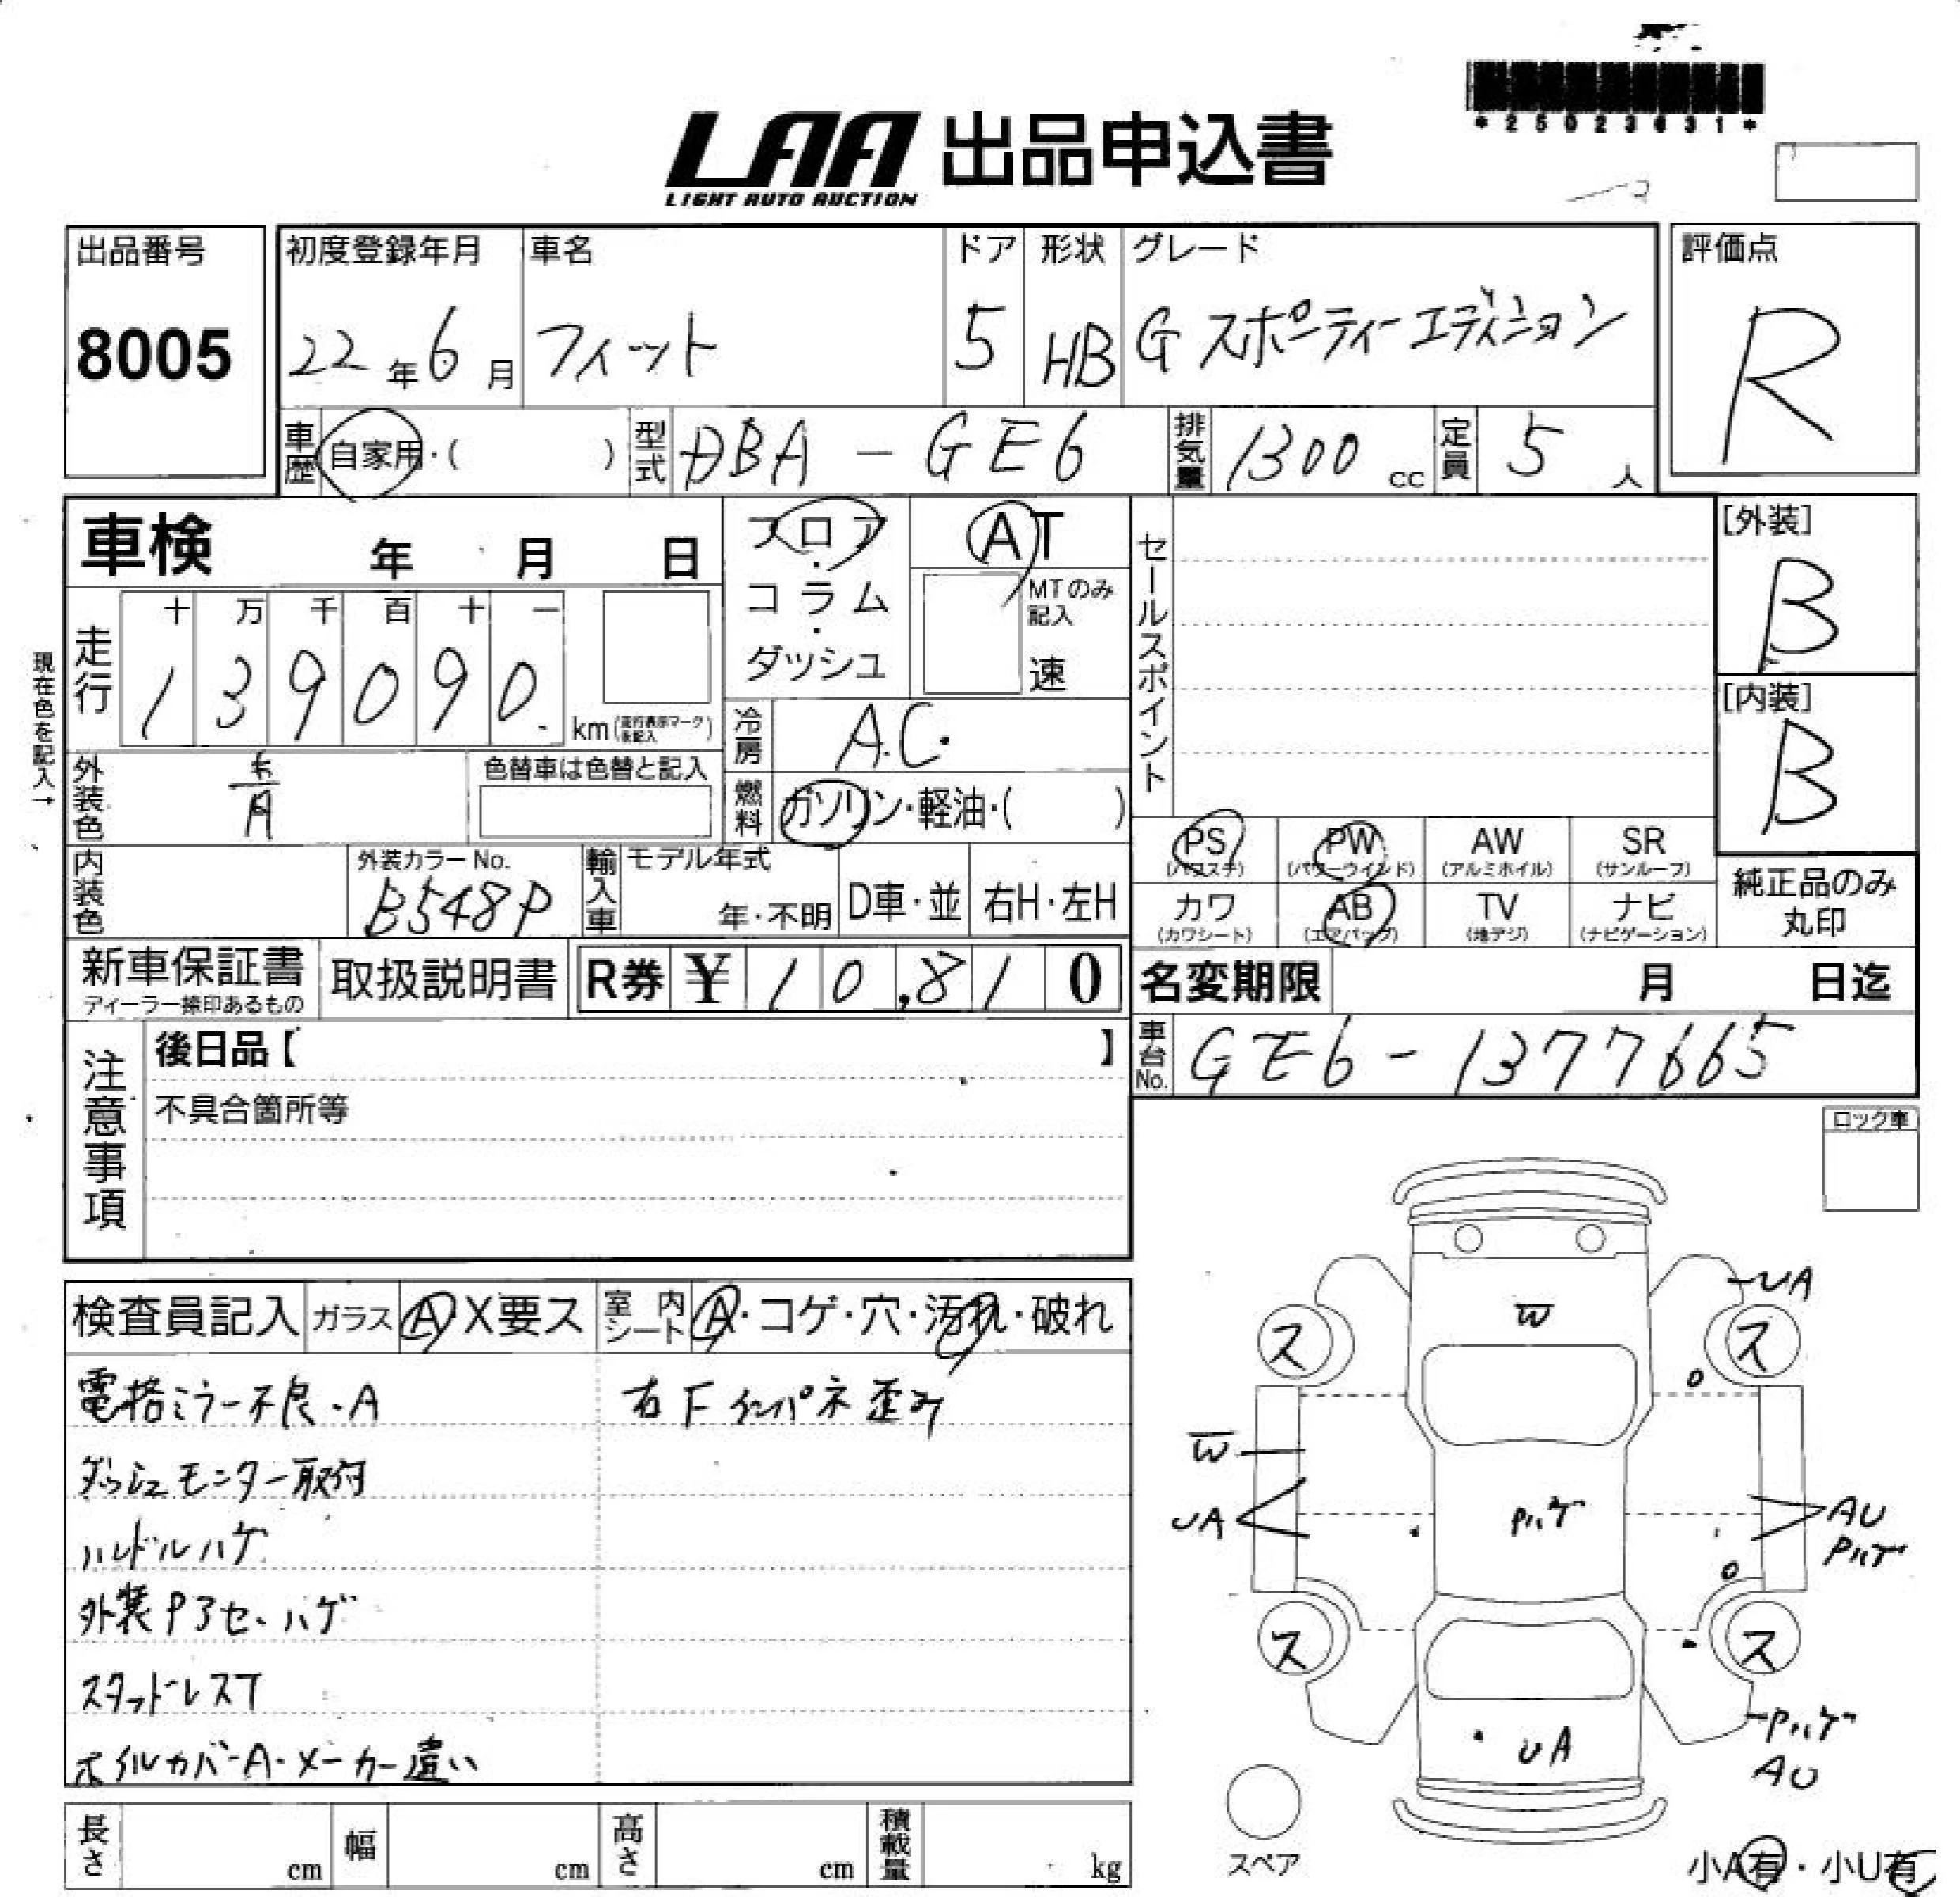 *25023631*
LAA 出品申込書
LIGHT AUTO AUCTION
出品番号
8005
初度登録年月
22年6月
車名
フィット
ドア
5
形状
HB
グレード
G スポーティーエディション
評価点
R
車歴 自家用・( )
型式 DBA-GE6
排気量 1300 cc
定員 5 人
車検 年 月 日
フロア・コラム・ダッシュ
AT
MTのみ記入
速
セールスポイント
[外装]
B
[内装]
B
現在色を記入→
走行
十 万 千 百 十 一
1 3 9 0 9 0 km(走行表示マークを記入)
冷房 A.C.
外装色 青
色替車は色替と記入
燃料 ガソリン・軽油・( )
内装色
外装カラーNo.
B548P
輸入車
モデル年式
年・不明
D車・並
右H・左H
PS
(パワステ)
PW
(パワーウインド)
AW
(アルミホイル)
SR
(サンルーフ)
カワ
(カワシート)
AB
(エアバック)
TV
(地デジ)
ナビ
(ナビゲーション)
純正品のみ
丸印
新車保証書
ディーラー捺印あるもの
取扱説明書
R券 ¥ 10,810
名変期限 月 日迄
車台No. GE6-1377665
注意事項
後日品【 】
不具合箇所等
ロック車
検査員記入
ガラス A X要ス
室内シート A・コゲ・穴・汚れ・破れ
電格ミラー不良・A
右Fインパネ歪み
ダッシュモニター取付
ハンドルハゲ
外装Pアセ、ハゲ
スタッドレスT
ホイルカバーA・メーカー違い
UA
W
ス
ス
W
UA
Pハゲ
AU
Pハゲ
ス
ス
UA
Pハゲ
AU
スペア
小A有・小U有
長さ cm
幅 cm
高さ cm
積載量 kg